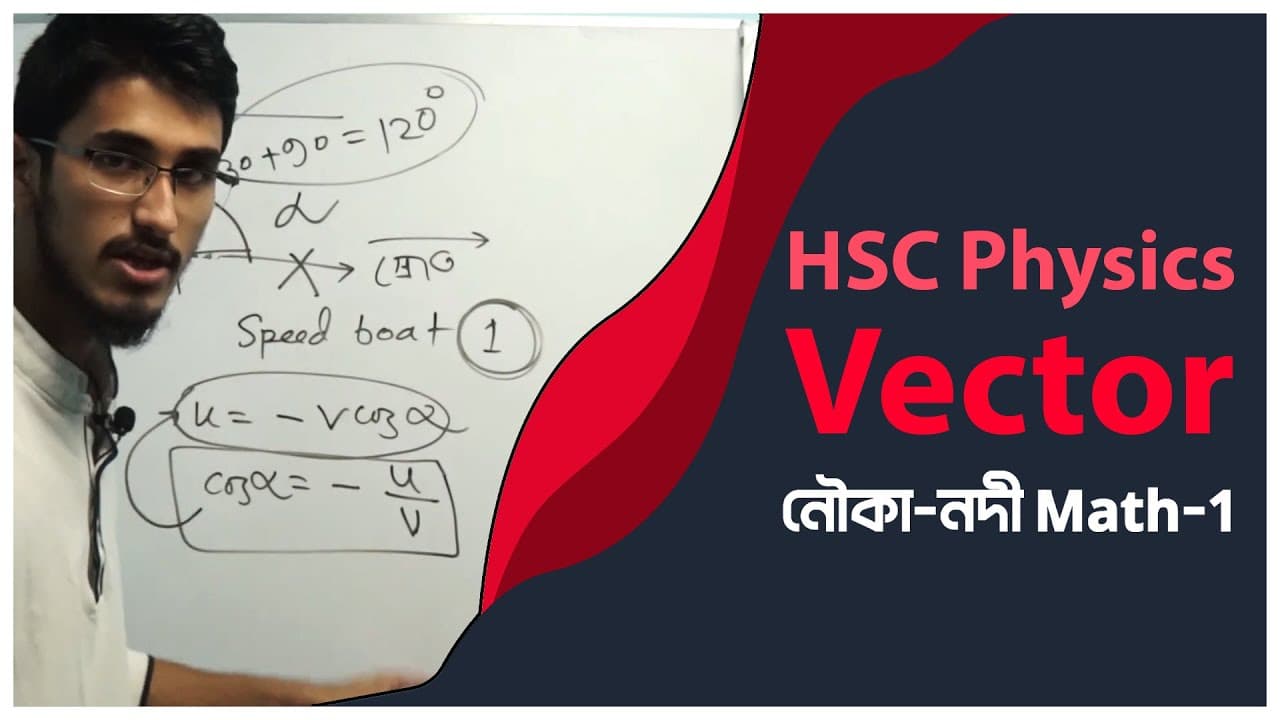 30+90 = 120°
α
X স্রোত
Speed boat 1
u = - v cos α
cos α = - u/v
HSC Physics
Vector
নৌকা-নদী Math-1